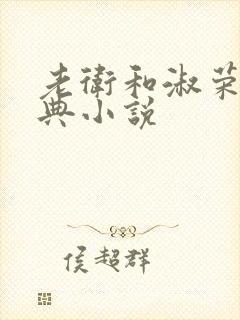 老衛和淑荣
典小説
侯超群